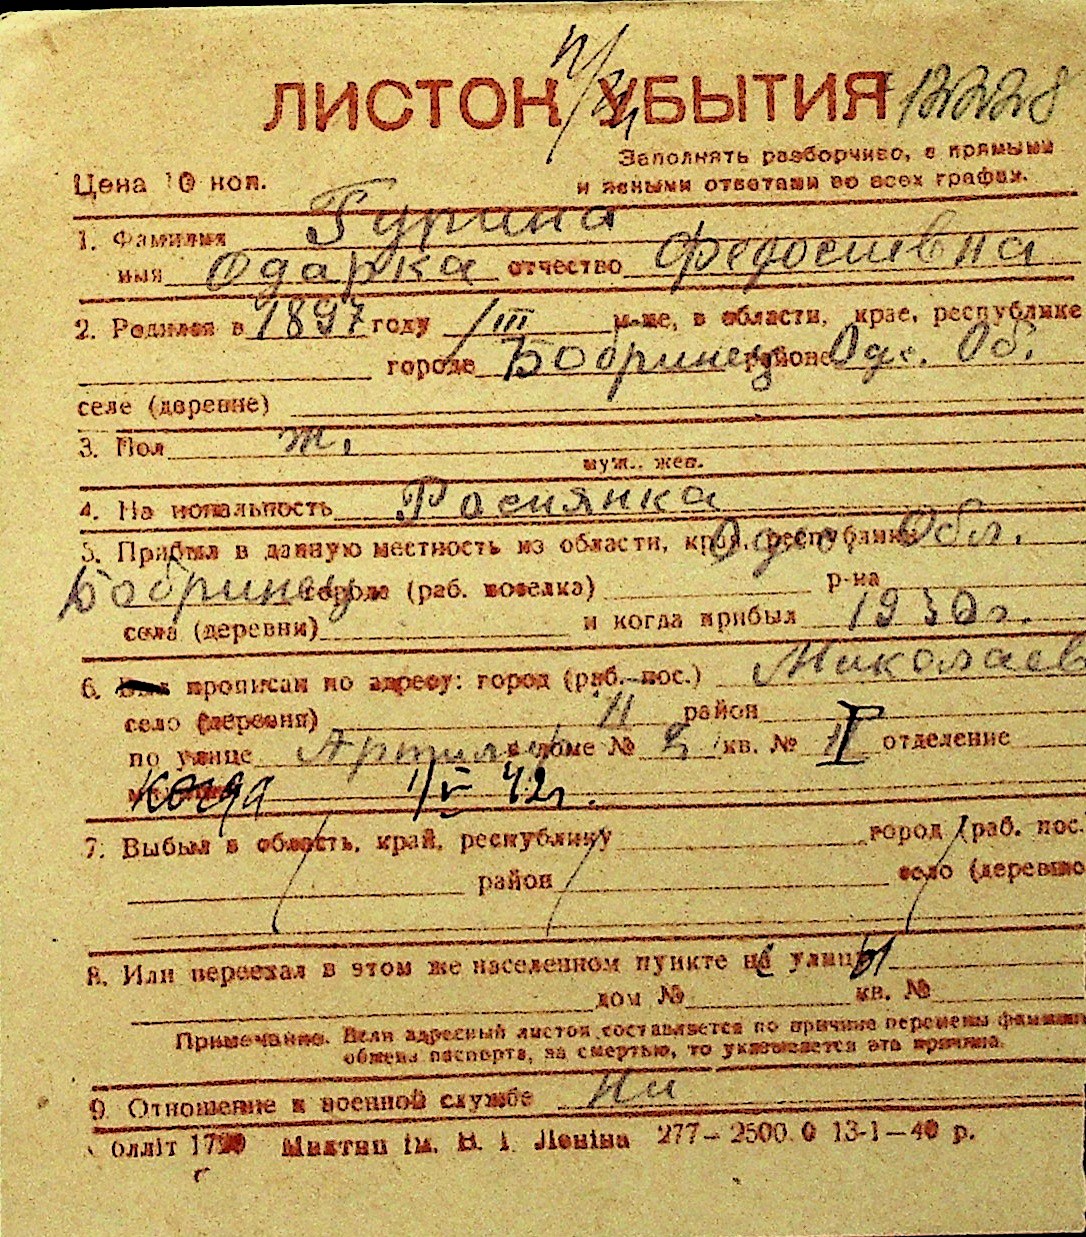 ЛИСТОК УБЫТИЯ 12228
Заполнять разборчиво, с прямыми
Цена 10 коп. и ясными ответами во всех графах.
1. Фамилия Гурина
имя Одарка отчество Федосиевна
2. Родился в 1897 году 1/III м-це, в области, крае, республике
городе Бобринец районе Одес. Об.
селе (деревне)
3. Пол ж.
муж., жен.
4. Национальность Росиянка
5. Прибыл в данную местность из области, края, республики Одес. Обл.
Бобринец города (раб. поселка) р-на
села (деревни) и когда прибыл 1930г.
6. прописан по адресу: город (раб. пос.) Николаев
село (деревня) 11 район
по улице Артилер в доме № 2 кв. № II отделение
когда 1/V 42г.
7. Выбыл в область, край, республику город (раб. пос.
район село (деревню
8. Или переехал в этом же населенном пункте на улицы
дом № кв. №
Примечание. Если адресный листок составляется по причине перемены фамилии
обмена паспорта, за смертью, то указывается эта причина.
9. Отношение к военной службе Ни
олліт 1790 Миктип ім. В. І. Леніна 277–2500.0 13-1–40 р.